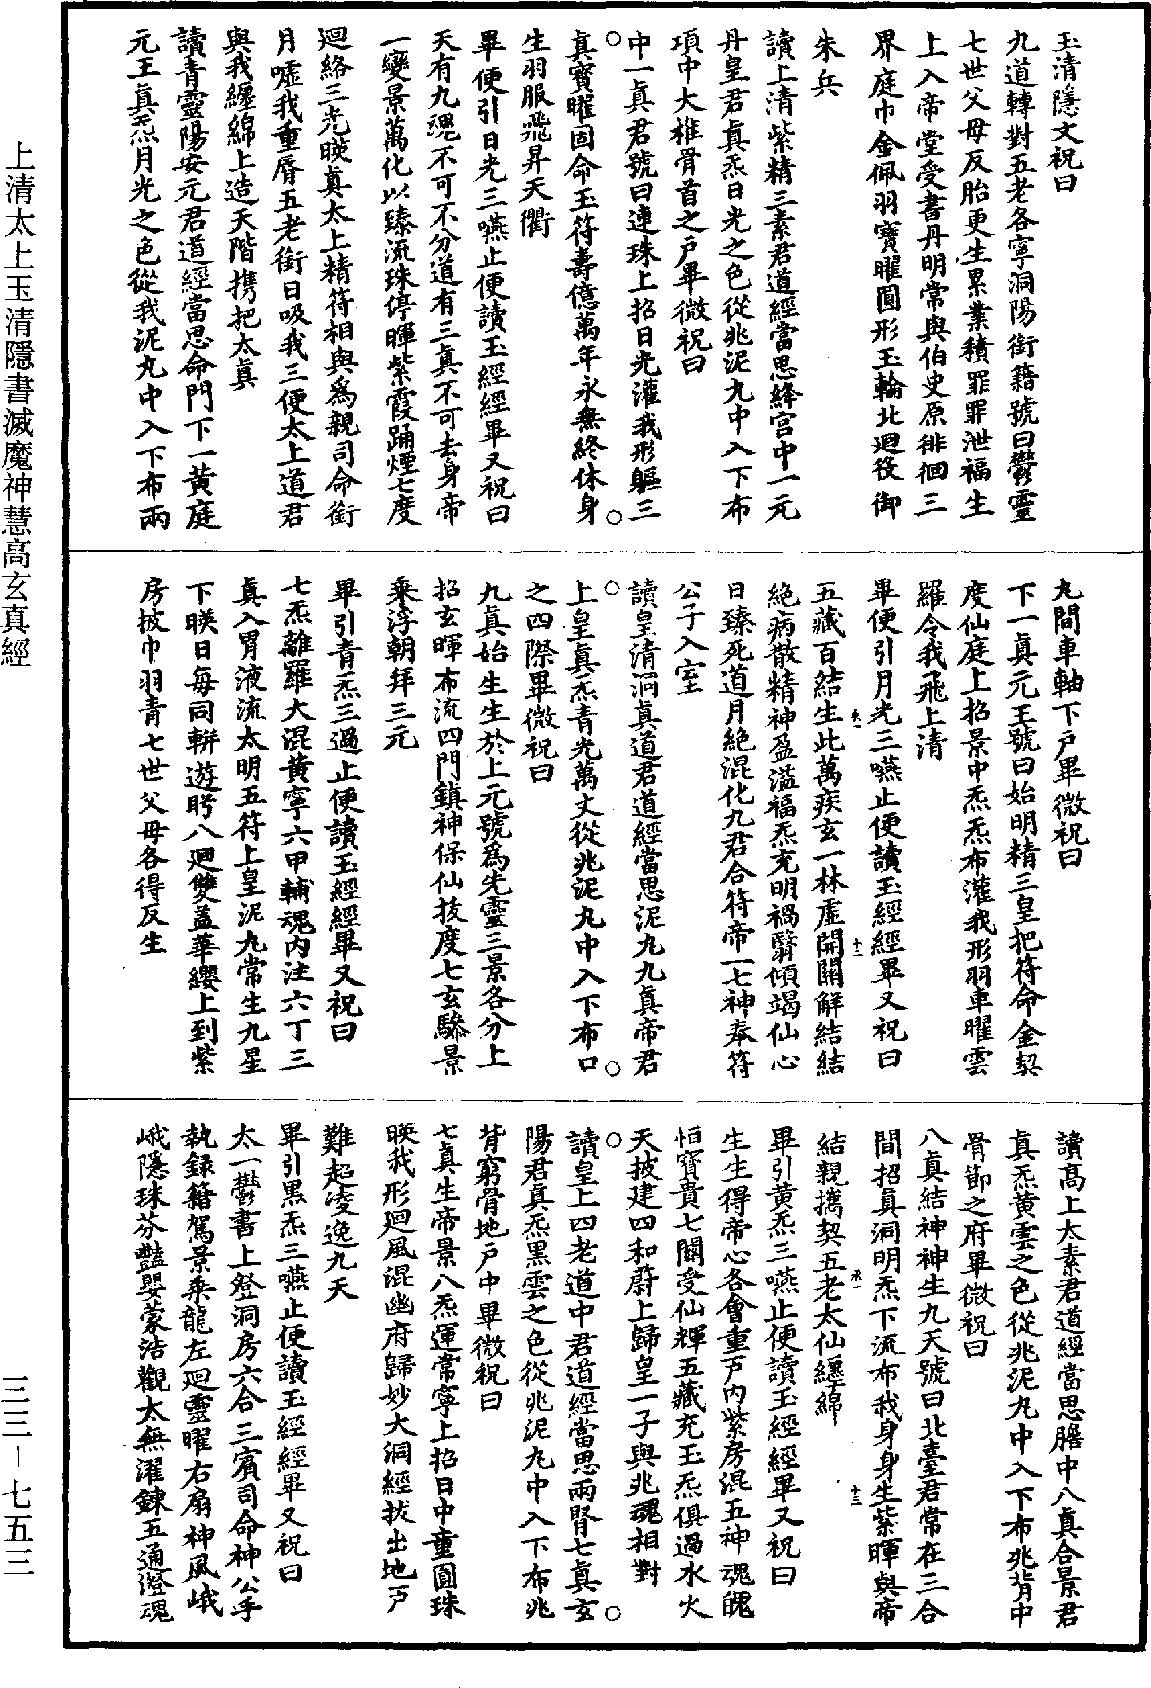 上清太上玉清隱書滅魔神慧高玄真經
三三－七五三
玉清隱文祝曰
九道轉對五老各寧洞陽銜籍號曰鬱靈
七世父母反胎更生累業積罪罪泄福生
上入帝堂受書丹明常與伯史原徘徊三
界庭巾金佩羽寶曜圓形玉輪北迴役御
朱兵
讀上清紫精三素君道經當思絳宮中一元
丹皇君真炁日光之色從兆泥丸中入下布
項中大椎骨首之戶畢微祝曰
中一真君號曰連珠上招日光灌我形軀三
真寶曜固命玉符壽億萬年永無終休身
生羽服飛昇天衢
畢便引日光三嚥止便讀玉經經畢又祝曰
天有九魂不可不分道有三真不可去身帝
一變景萬化以臻流珠停暉紫霞踊煙七度
迴絡三光暎真太上精符相與為親司命銜
月噓我重脣五老銜日吸我三便太上道君
與我纏綿上造天階携把太真
讀青靈陽安元君道經當思命門下一黃庭
元王真炁月光之色從我泥丸中入下布兩
九間車軸下戶畢微祝曰
下一真元王號曰始明精三皇把符命金契
度仙庭上招景中炁炁布灌我形羽車曜雲
羅令我飛上清
畢便引月光三嚥止便讀玉經經畢又祝曰
五藏百結生此萬疾玄一林虛開關解結結
絕病散精神盈溢福炁充明禍翳傾竭仙心
日臻死道月絕混化九君合符帝一七神奉符
公子入室
讀皇清洞真道君道經當思泥丸九真帝君
上皇真炁青光萬丈從兆泥丸中入下布口
之四際畢微祝曰
九真始生生於上元號為先靈三景各分上
招玄暉布流四門鎮神保仙拔度七玄驂景
乘浮朝拜三元
畢引青炁三過止便讀玉經經畢又祝曰
七炁離羅大混黃寧六甲輔魂內注六丁三
真入胃液流太明五符上皇泥丸常生九星
下暎日每同輧遊眄八迴雙蓋華纓上到紫
房披巾羽青七世父母各得反生
讀高上太素君道經當思膽中八真合景君
真炁黃雲之色從兆泥丸中入下布兆背中
骨節之府畢微祝曰
八真結神神生九天號曰北臺君常在三合
間招真洞明炁下流布我身身生紫暉與帝
結親攜契五老太仙纏綿
畢引黃炁三嚥止便讀玉經經畢又祝曰
生生得帝心各會重戶內紫房混五神魂魄
恒寶貴七關受仙輝五藏充玉炁俱過水火
天披建四和蔚上歸皇一子與兆魂相對
讀皇上四老道中君道經當思兩腎七真玄
陽君真炁黑雲之色從兆泥丸中入下布兆
背窮骨地戶中畢微祝曰
七真生帝景八炁運常寧上招日中童圓珠
暎我形迴風混幽府歸妙大洞經拔出地戶
難超凌逸九天
畢引黑炁三嚥止便讀玉經經畢又祝曰
太一鬱書上登洞房六合三賓司命神公手
執錄籍駕景乘龍左迴靈曜右扇神風峨
峨隱珠芬豔嬰蒙浩觀太無濯鍊五通澄魂